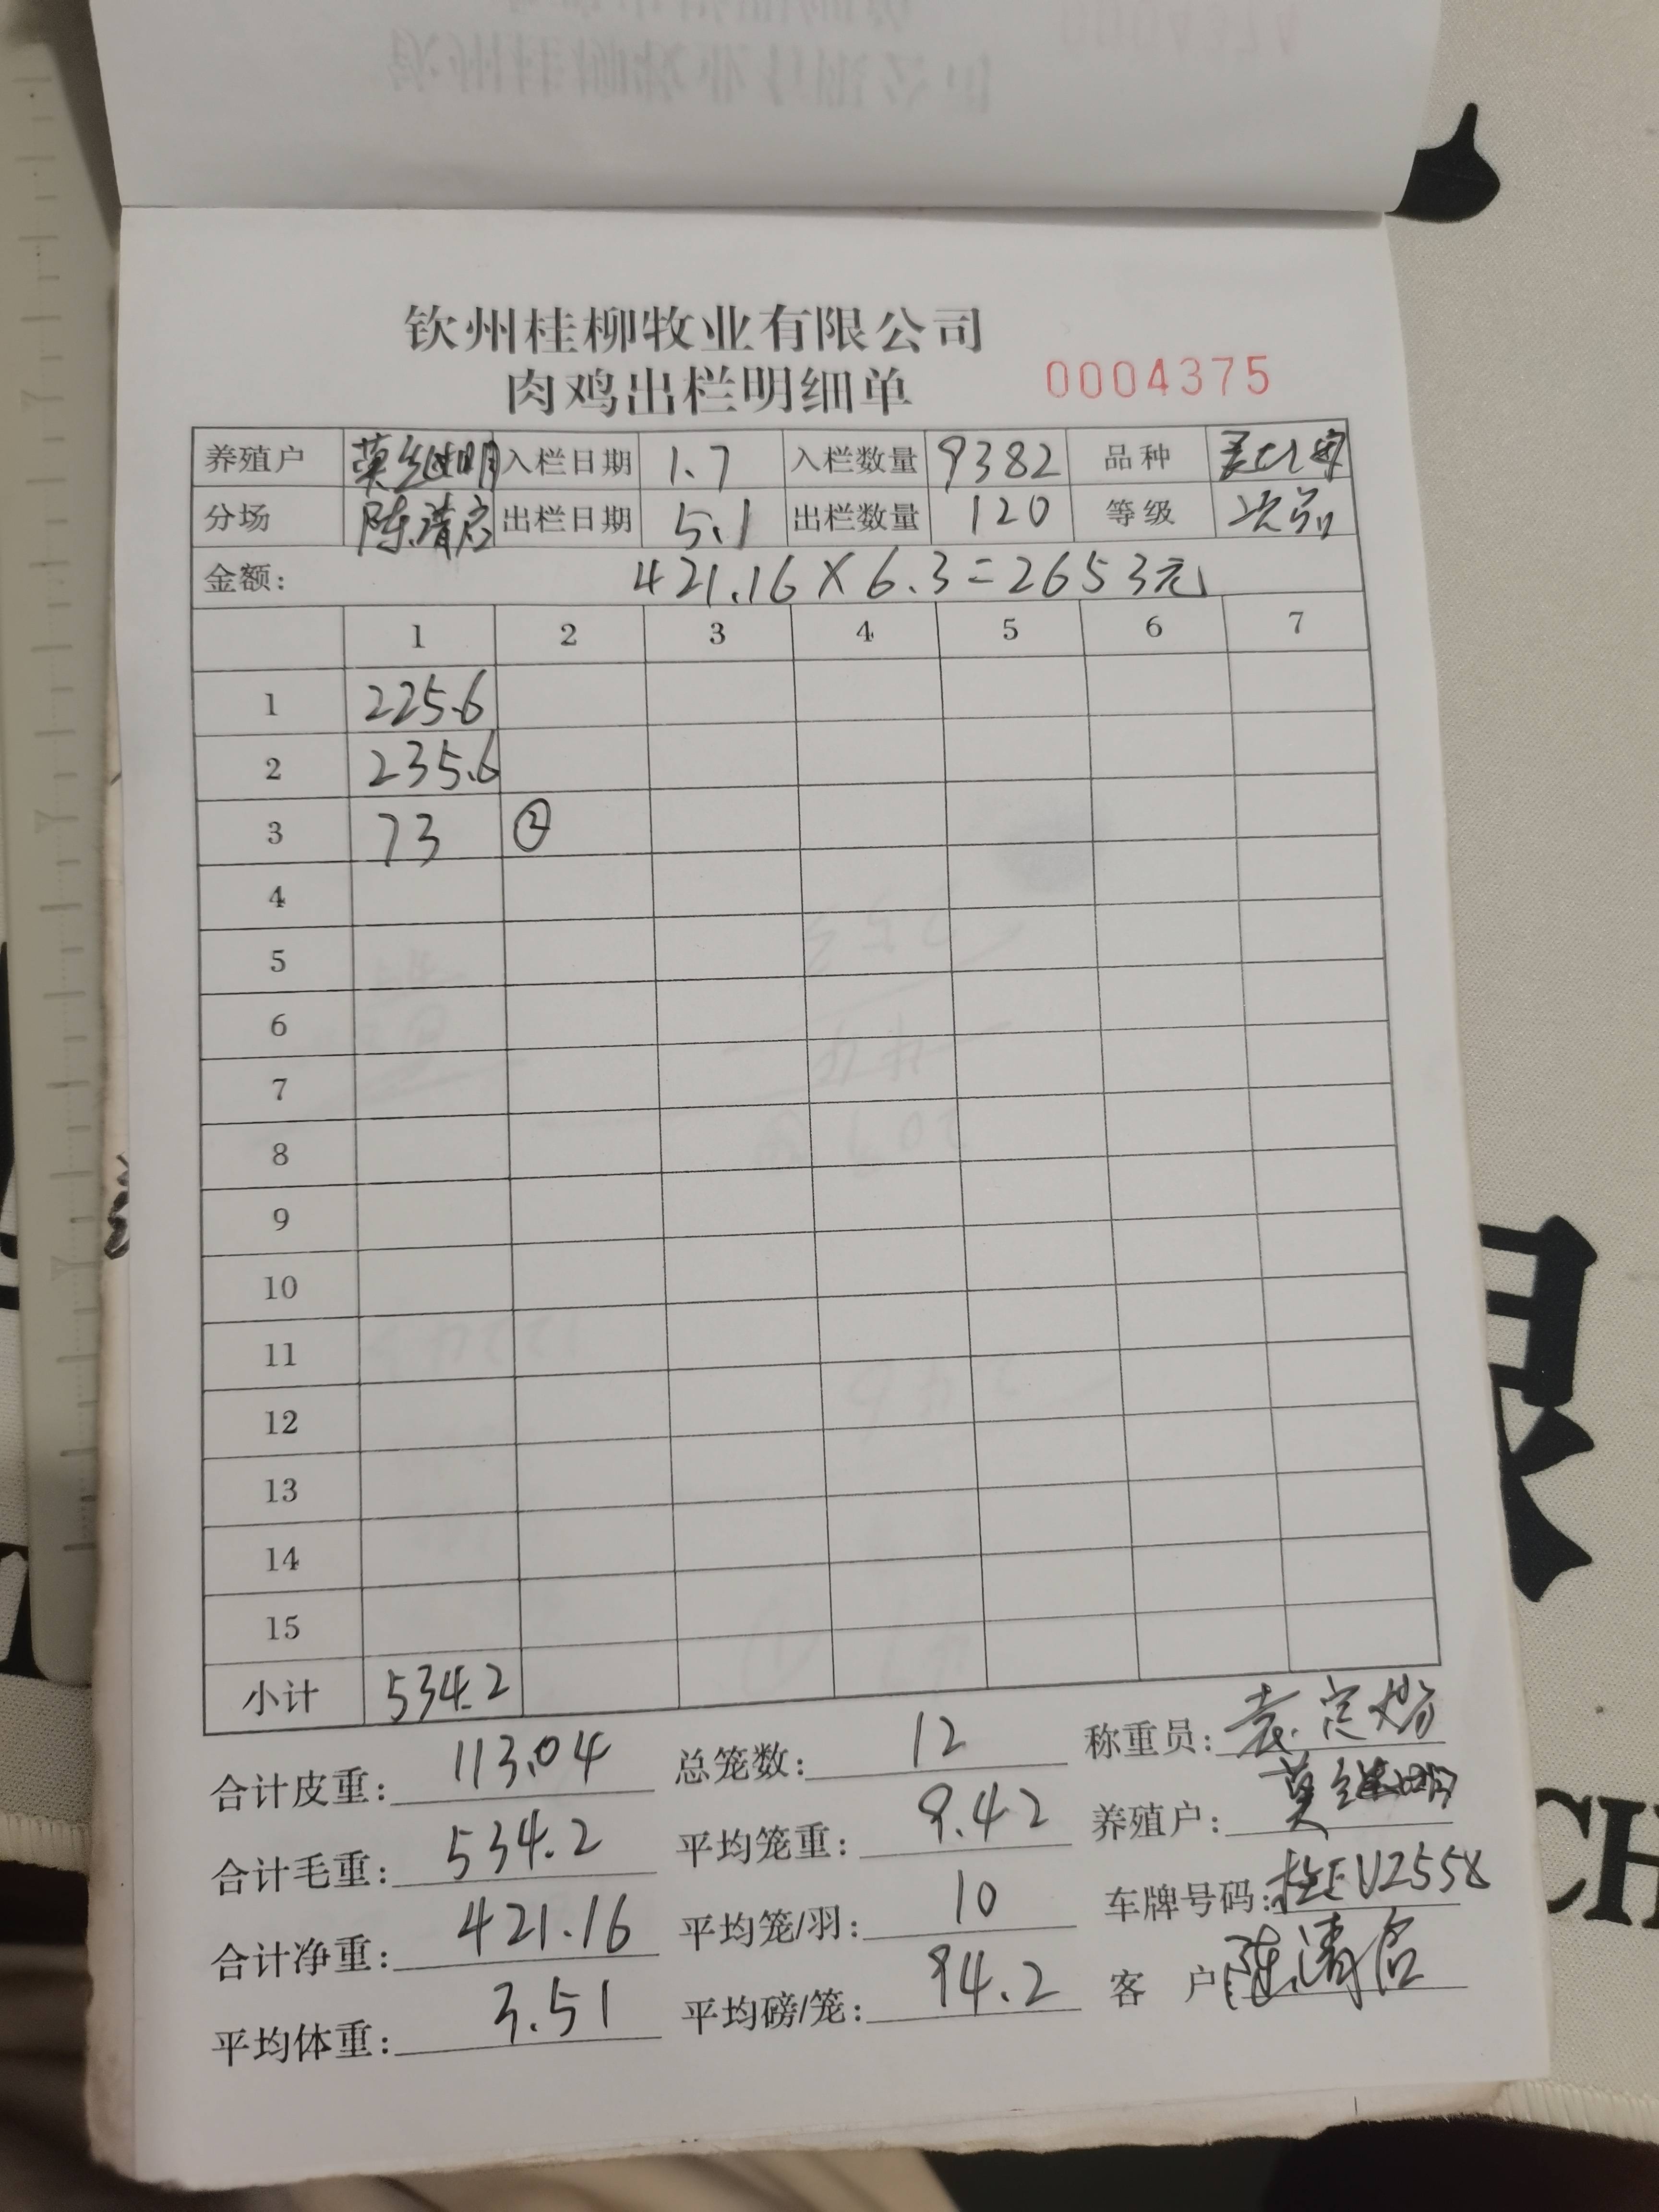 钦州桂柳牧业有限公司
肉鸡出栏明细单 0004375
养殖户 莫继明 入栏日期 1.7 入栏数量 9382 品种
分场 陈清启 出栏日期 5.1 出栏数量 120 等级 次品
金额: 421.16×6.3=2653元
1 2 3 4 5 6 7
1 225.6
2 235.6
3 73 ②
4
5
6
7
8
9
10
11
12
13
14
15
小计 534.2
合计皮重: 113.04 总笼数: 12 称重员:
合计毛重: 534.2 平均笼重: 9.42 养殖户: 莫继明
合计净重: 421.16 平均笼/羽: 10 车牌号码: 桂EV2558
平均体重: 3.51 平均磅/笼: 94.2 客 户 陈清启